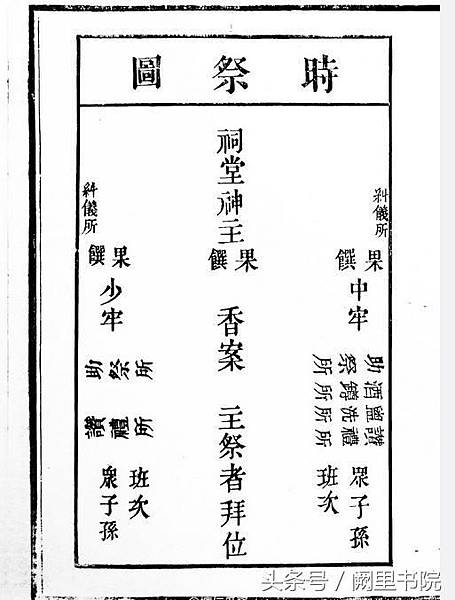 時祭圖
糾儀所
果饌
中牢
讃禮所
盥洗所
酒罇所
助祭所
眾子孫
班次
祠堂神主
果饌
香案
主祭者拜位
糾儀所
果饌
少牢
助祭所
讃禮所
班次
眾子孫
头条号 / 阙里书院